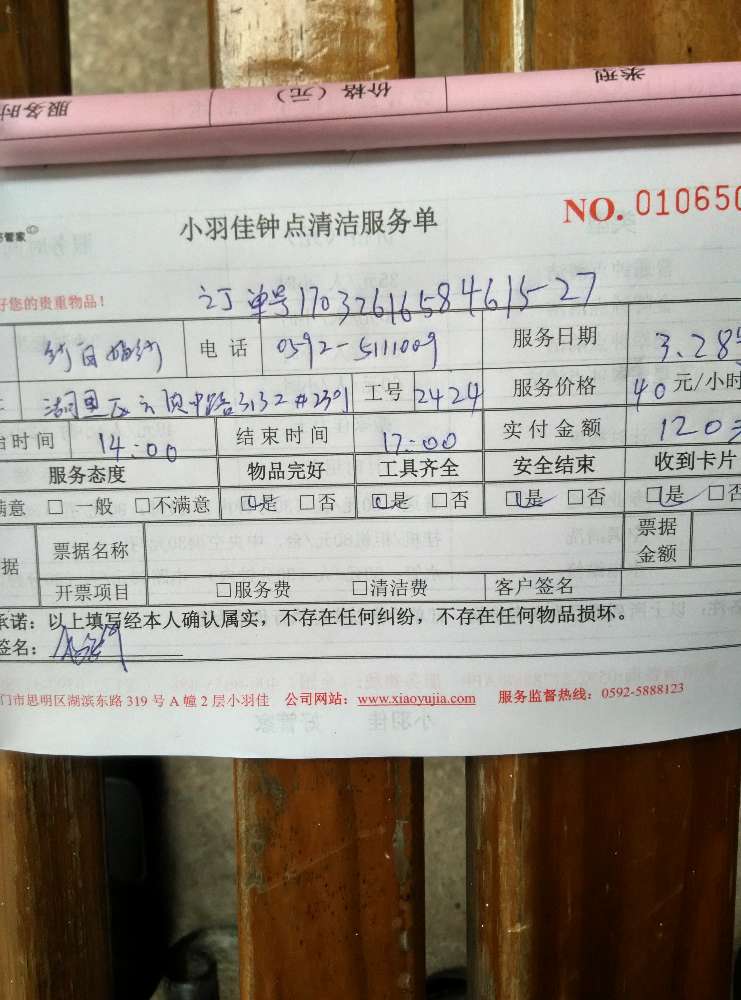 服务时 价格（元） 类型
管家
小羽佳钟点清洁服务单 NO. 01065
好您的贵重物品！
订单号17032616584615-27
电话 0592-5111009 服务日期 3.28
湖里区 工号 2424 服务价格 40元/小时
始时间 14:00 结束时间 17:00 实付金额 120元
服务态度 物品完好 工具齐全 安全结束 收到卡片
满意 □ 一般 □不满意 □是 □否 □是 □否 □是 □否 □是 □否
据 票据名称 票据金额
开票项目 □服务费 □清洁费 客户签名
承诺：以上填写经本人确认属实，不存在任何纠纷，不存在任何物品损坏。
签名：
门市思明区湖滨东路 319 号 A 幢 2 层小羽佳 公司网站：www.xiaoyujia.com 服务监督热线：0592-5888123